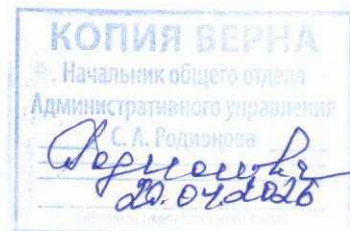 КОПИЯ ВЕРНА
Начальник общего отдела
Административного управления
С. А. Родионова
Родионова
20.04.2026